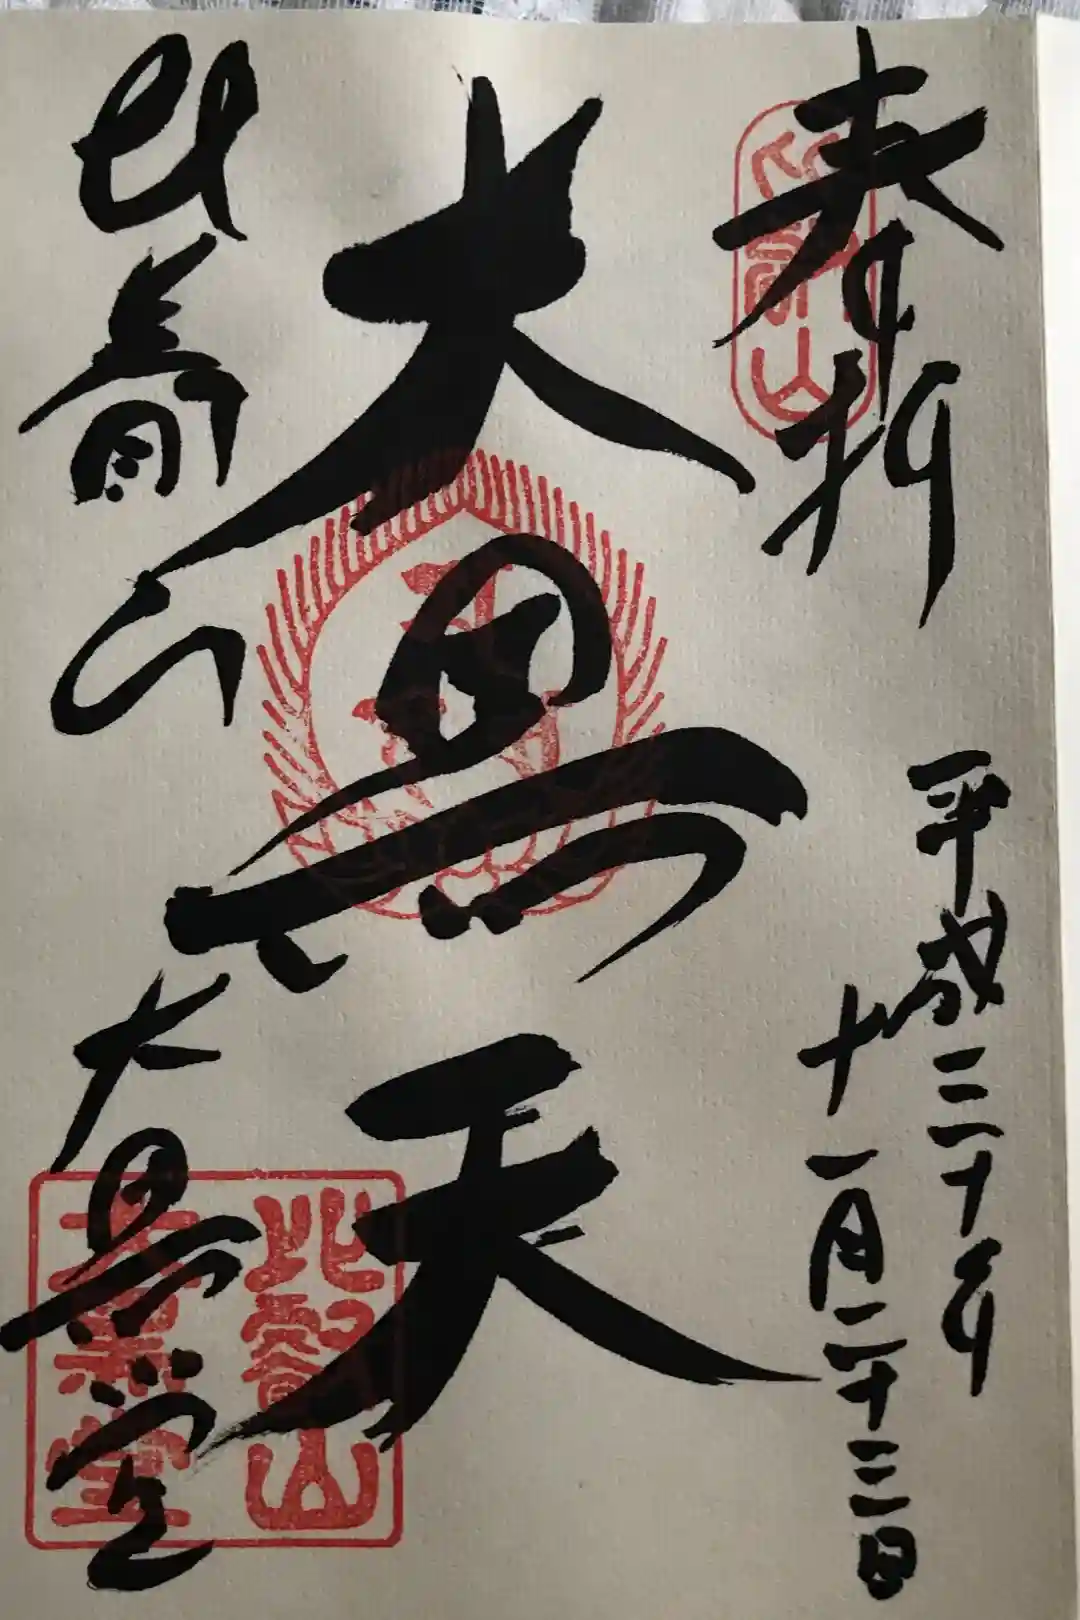 奉拝
比叡山
平成三十年
十一月二十三日
大黒天
比叡山
大黒堂
比叡山
大黒堂